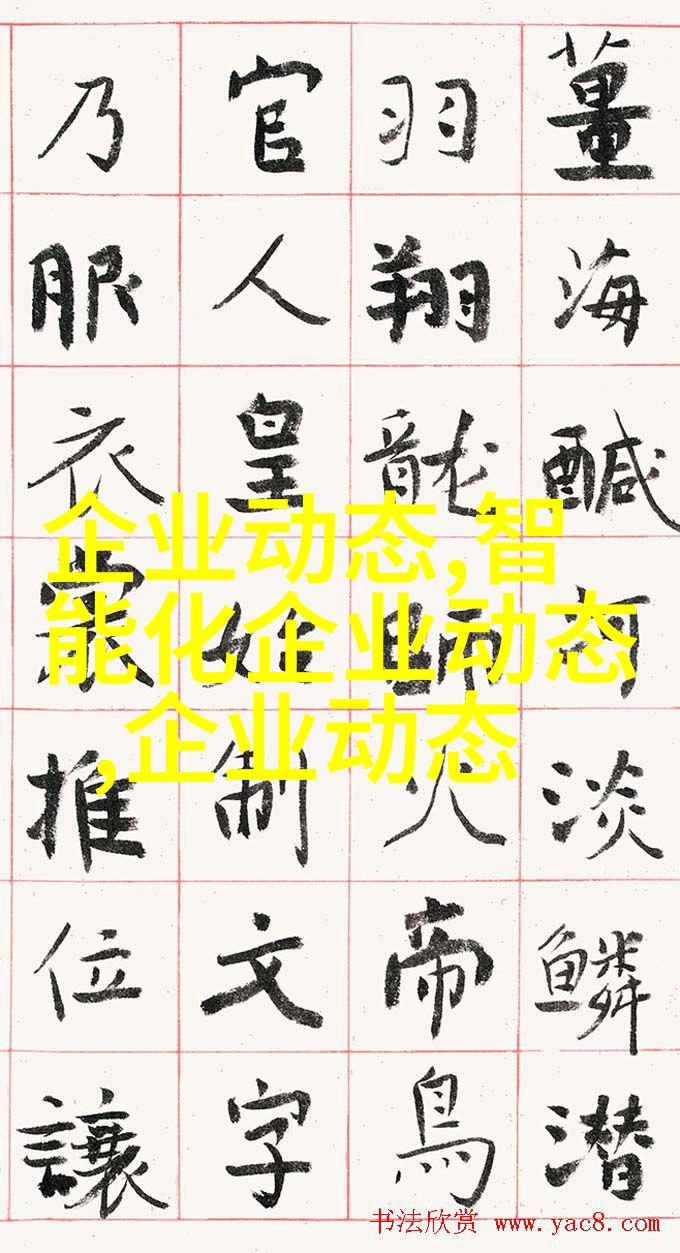 薑海醎河淡鱗潛
羽翔龍師火帝鳥
官人皇始制文字
乃服衣裳推位讓
企业动态,智
能化企业动态
,企业动态
书法欣赏 www.yac8.com